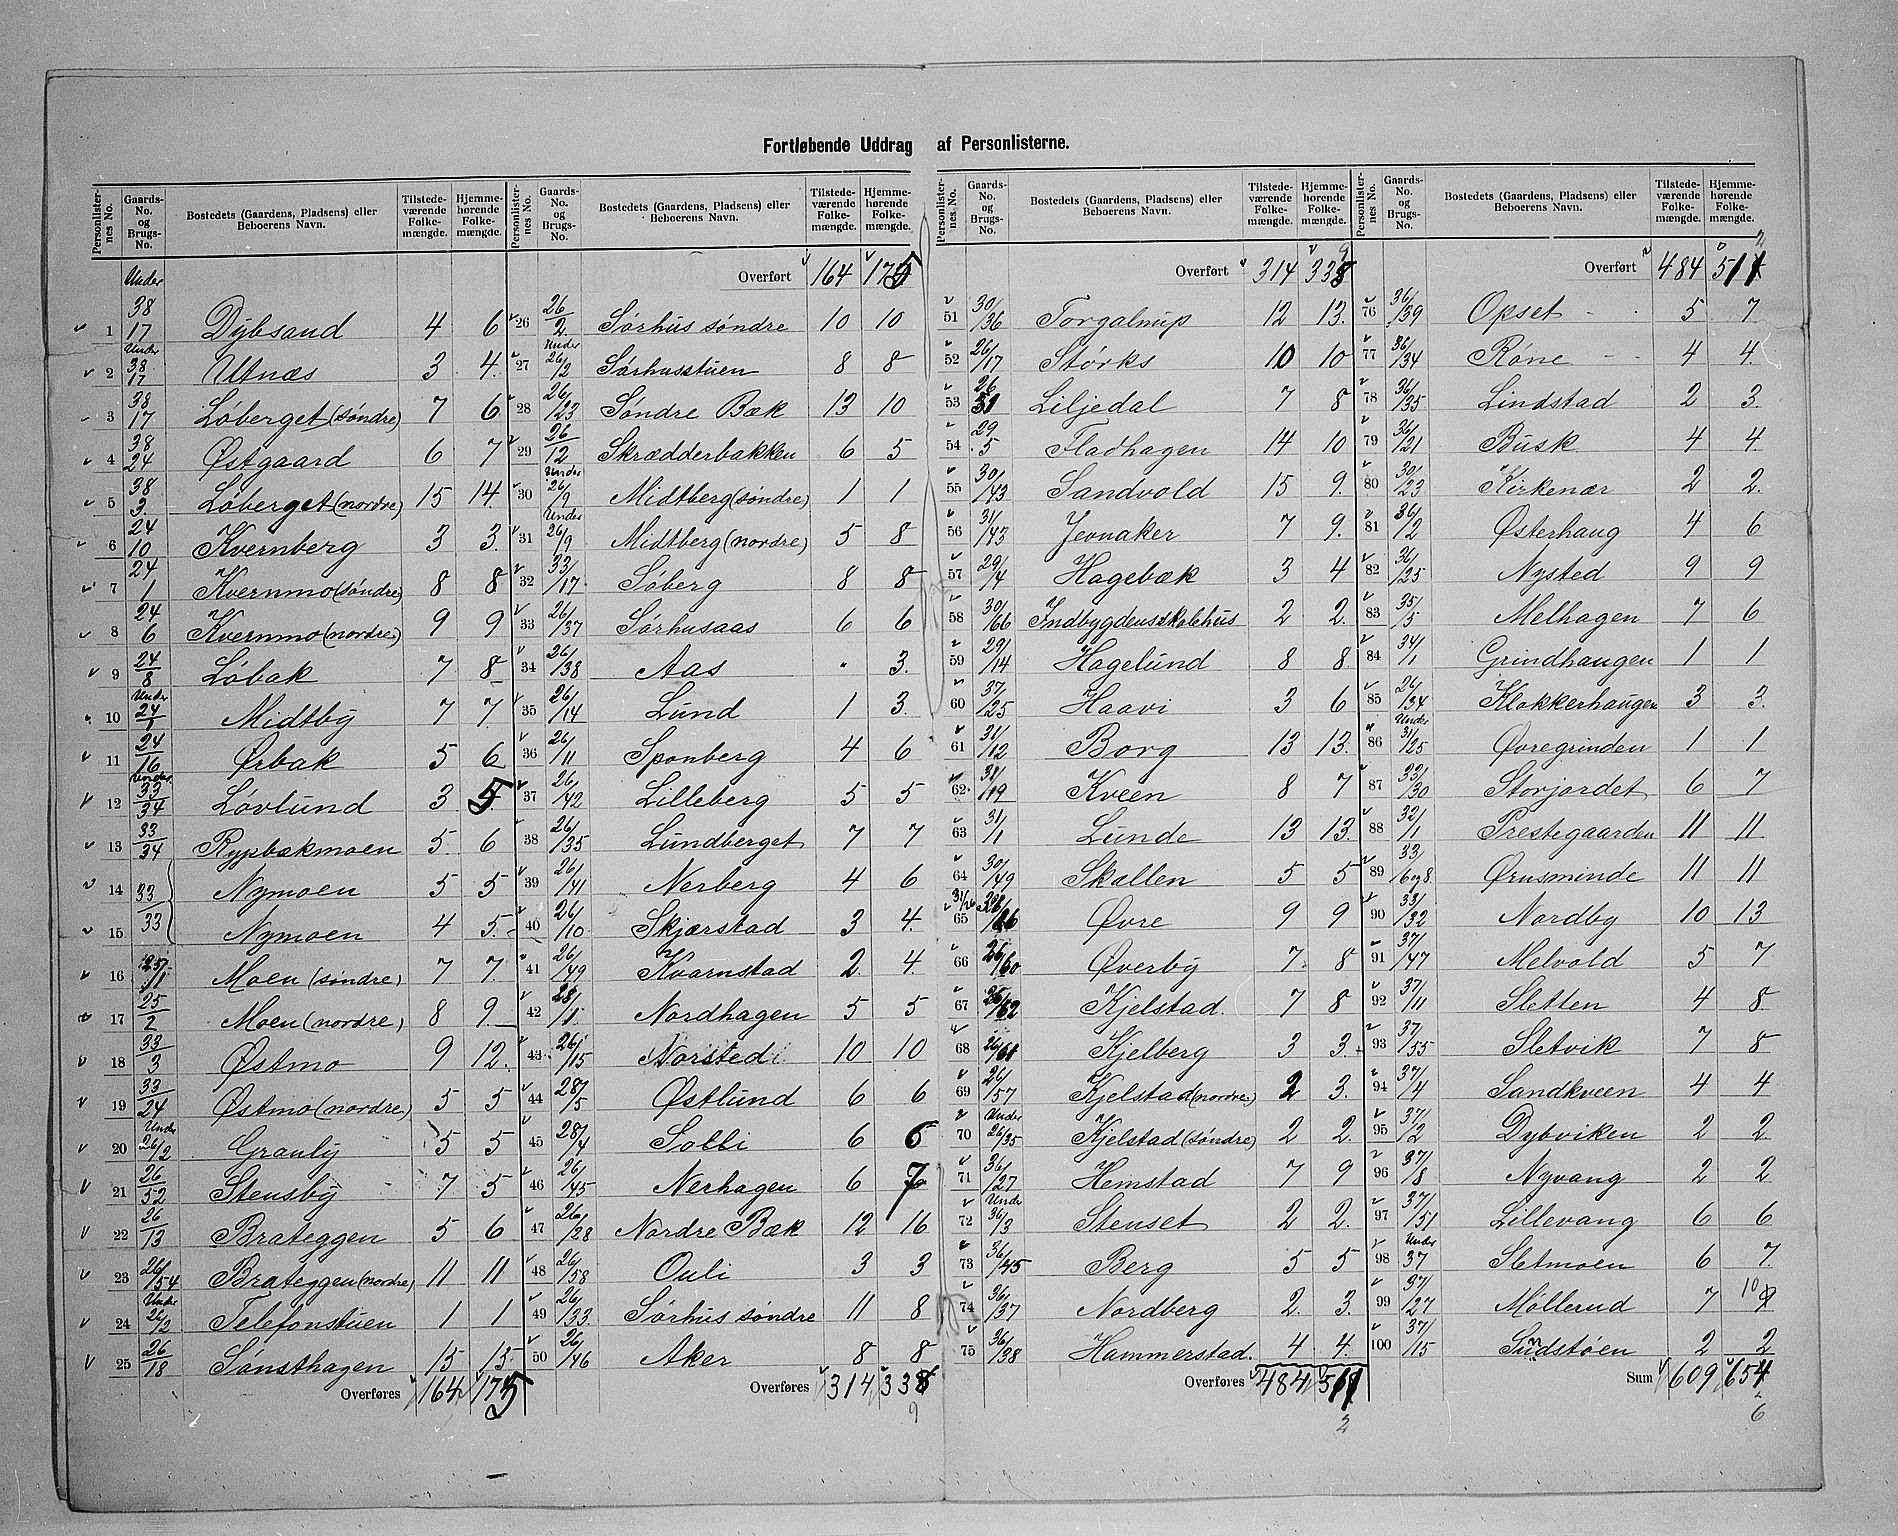 Fortløbende Uddrag af Personlisterne.
Personlister-nes No. | Gaards-No. og Brugs-No. | Bostedets (Gaardens, Pladsens) eller Beboerens Navn. | Tilstede-værende Folke-mængde. | Hjemme-hørende Folke-mængde.
1 | Under 38/17 | Dybsand | 4 | 6
2 | Under 38/17 | Utnæs | 3 | 4
3 | 38/17 | Løberget (søndre) | 7 | 6
4 | 38/24 | Østgaard | 6 | 7
5 | 38/3 | Løberget (nordre) | 15 | 14
6 | 24/10 | Kvernberg | 3 | 3
7 | 24/1 | Kvernmo (søndre) | 8 | 8
8 | 24/6 | Kvernmo (nordre) | 9 | 9
9 | 24/8 | Løbak | 7 | 8
10 | Under 24/1 | Midtby | 7 | 7
11 | 24/16 | Ørbak | 5 | 6
12 | Under 33/34 | Løvlund | 3 | 5
13 | 33/34 | Rypbakmoen | 5 | 6
14 | 33/33 | Nymoen | 5 | 5
15 | Nymoen | 4 | 5
16 | 25/1 | Moen (søndre) | 7 | 7
17 | 25/2 | Moen (nordre) | 8 | 9
18 | 33/3 | Østmo | 9 | 12
19 | 33/24 | Østmo (nordre) | 5 | 5
20 | Under 26/2 | Granly | 5 | 5
21 | 26/52 | Stensby | 7 | 5
22 | 26/13 | Brateggen | 5 | 6
23 | 26/54 | Brateggen (nordre) | 11 | 11
24 | Under 26/2 | Telefonstuen | 1 | 1
25 | 26/18 | Sønsthagen | 15 | 15
Overføres | 164 | 175
Personlister-nes No. | Gaards-No. og Brugs-No. | Bostedets (Gaardens, Pladsens) eller Beboerens Navn. | Tilstede-værende Folke-mængde. | Hjemme-hørende Folke-mængde.
Overført | 164 | 175
26 | 26/2 | Sørhus søndre | 10 | 10
27 | Under 26/2 | Sørhusstuen | 8 | 8
28 | 26/23 | Søndre Bæk | 13 | 10
29 | 26/12 | Skrædderbakken | 6 | 5
30 | Under 26/9 | Midtberg (søndre) | 1 | 1
31 | Under 26/9 | Midtberg (nordre) | 5 | 8
32 | 33/17 | Søberg | 8 | 8
33 | 26/37 | Sørhusaas | 6 | 6
34 | 26/38 | Aas | " | 3
35 | 26/14 | Lund | 1 | 3
36 | 26/11 | Sponberg | 4 | 6
37 | 26/42 | Lilleberg | 5 | 5
38 | 26/35 | Lundberget | 7 | 7
39 | 26/41 | Nerberg | 4 | 6
40 | 26/10 | Skjærstad | 3 | 4
41 | 26/49 | Kvarnstad | 2 | 4
42 | 28/1 | Nordhagen | 5 | 5
43 | 26/15 | Norsted | 10 | 10
44 | 28/5 | Østlund | 6 | 6
45 | 28/4 | Solli | 6 | 6
46 | 26/45 | Nerhagen | 6 | 7
47 | 26/28 | Nordre Bæk | 12 | 16
48 | 26/58 | Ouli | 3 | 3
49 | 26/33 | Sørhus søndre | 11 | 8
50 | 26/46 | Aker | 8 | 8
Overføres | 314 | 338
9
Personlister-nes No. | Gaards-No. og Brugs-No. | Bostedets (Gaardens, Pladsens) eller Beboerens Navn. | Tilstede-værende Folke-mængde. | Hjemme-hørende Folke-mængde.
9
Overført | 314 | 338
51 | 30/36 | Torgalnup | 12 | 13
52 | 26/17 | Størks | 10 | 10
53 | 26/31 | Liljedal | 7 | 8
54 | 29/5 | Fladhagen | 14 | 10
55 | 30/43 | Sandvold | 15 | 9
56 | 31/43 | Jevnaker | 7 | 9
57 | 29/4 | Hagebæk | 3 | 4
58 | 30/66 | Indbygdensskolehus | 2 | 2
59 | 29/14 | Hagelund | 8 | 8
60 | 37/25 | Haavi | 3 | 6
61 | 31/12 | Borg | 13 | 13
62 | 31/19 | Kveen | 8 | 7
63 | 31/1 | Lunde | 13 | 13
64 | 30/49 | Skallen | 5 | 5
65 | 31/26 | Øvre | 9 | 9
66 | 26/60 | Øverby | 7 | 8
67 | 26/62 | Kjelstad | 7 | 8
68 | 26/61 | Kjelberg | 3 | 3
69 | 26/57 | Kjelstad (nordre) | 2 | 3
70 | Under 26/35 | Kjelstad (søndre) | 2 | 2
71 | 36/27 | Hemstad | 7 | 9
72 | Under 36/3 | Stenset | 2 | 2
73 | 36/45 | Berg | 5 | 5
74 | 36/37 | Nordberg | 2 | 3
75 | 36/38 | Hammerstad | 4 | 4
Overføres | 484 | 511
2
Personlister-nes No. | Gaards-No. og Brugs-No. | Bostedets (Gaardens, Pladsens) eller Beboerens Navn. | Tilstede-værende Folke-mængde. | Hjemme-hørende Folke-mængde.
2
Overført | 484 | 511
76 | 36/39 | Opset | 5 | 7
77 | 36/34 | Røne | 4 | 4
78 | 36/35 | Lindstad | 2 | 3
79 | 36/21 | Busk | 4 | 4
80 | 30/23 | Kirkenær | 2 | 2
81 | 36/2 | Østerhaug | 4 | 6
82 | 36/25 | Nysted | 9 | 9
83 | 35/5 | Melhagen | 7 | 6
84 | 34/1 | Grindhaugen | 1 | 1
85 | 26/34 | Klokkerhaugen | 3 | 3
86 | Under 31/25 | Øvregrinden | 1 | 1
87 | 33/30 | Storjordet | 6 | 7
88 | 32/1 | Prestegaarden | 11 | 11
89 | 33/6 og 8 | Ørusminde | 11 | 11
90 | 33/32 | Nordby | 10 | 13
91 | 37/47 | Melvold | 5 | 7
92 | 37/11 | Sletten | 4 | 8
93 | 37/55 | Sletvik | 7 | 8
94 | 37/4 | Sandkveen | 4 | 4
95 | 37/2 | Dybviken | 2 | 2
96 | 37/8 | Nyvang | 2 | 2
97 | 37/51 | Lillevang | 6 | 6
98 | Under 37 | Sletmoen | 6 | 7
99 | 37/27 | Møllerud | 7 | 10 9
100 | 37/15 | Sudstøen | 2 | 2
Sum | 609 | 654
6